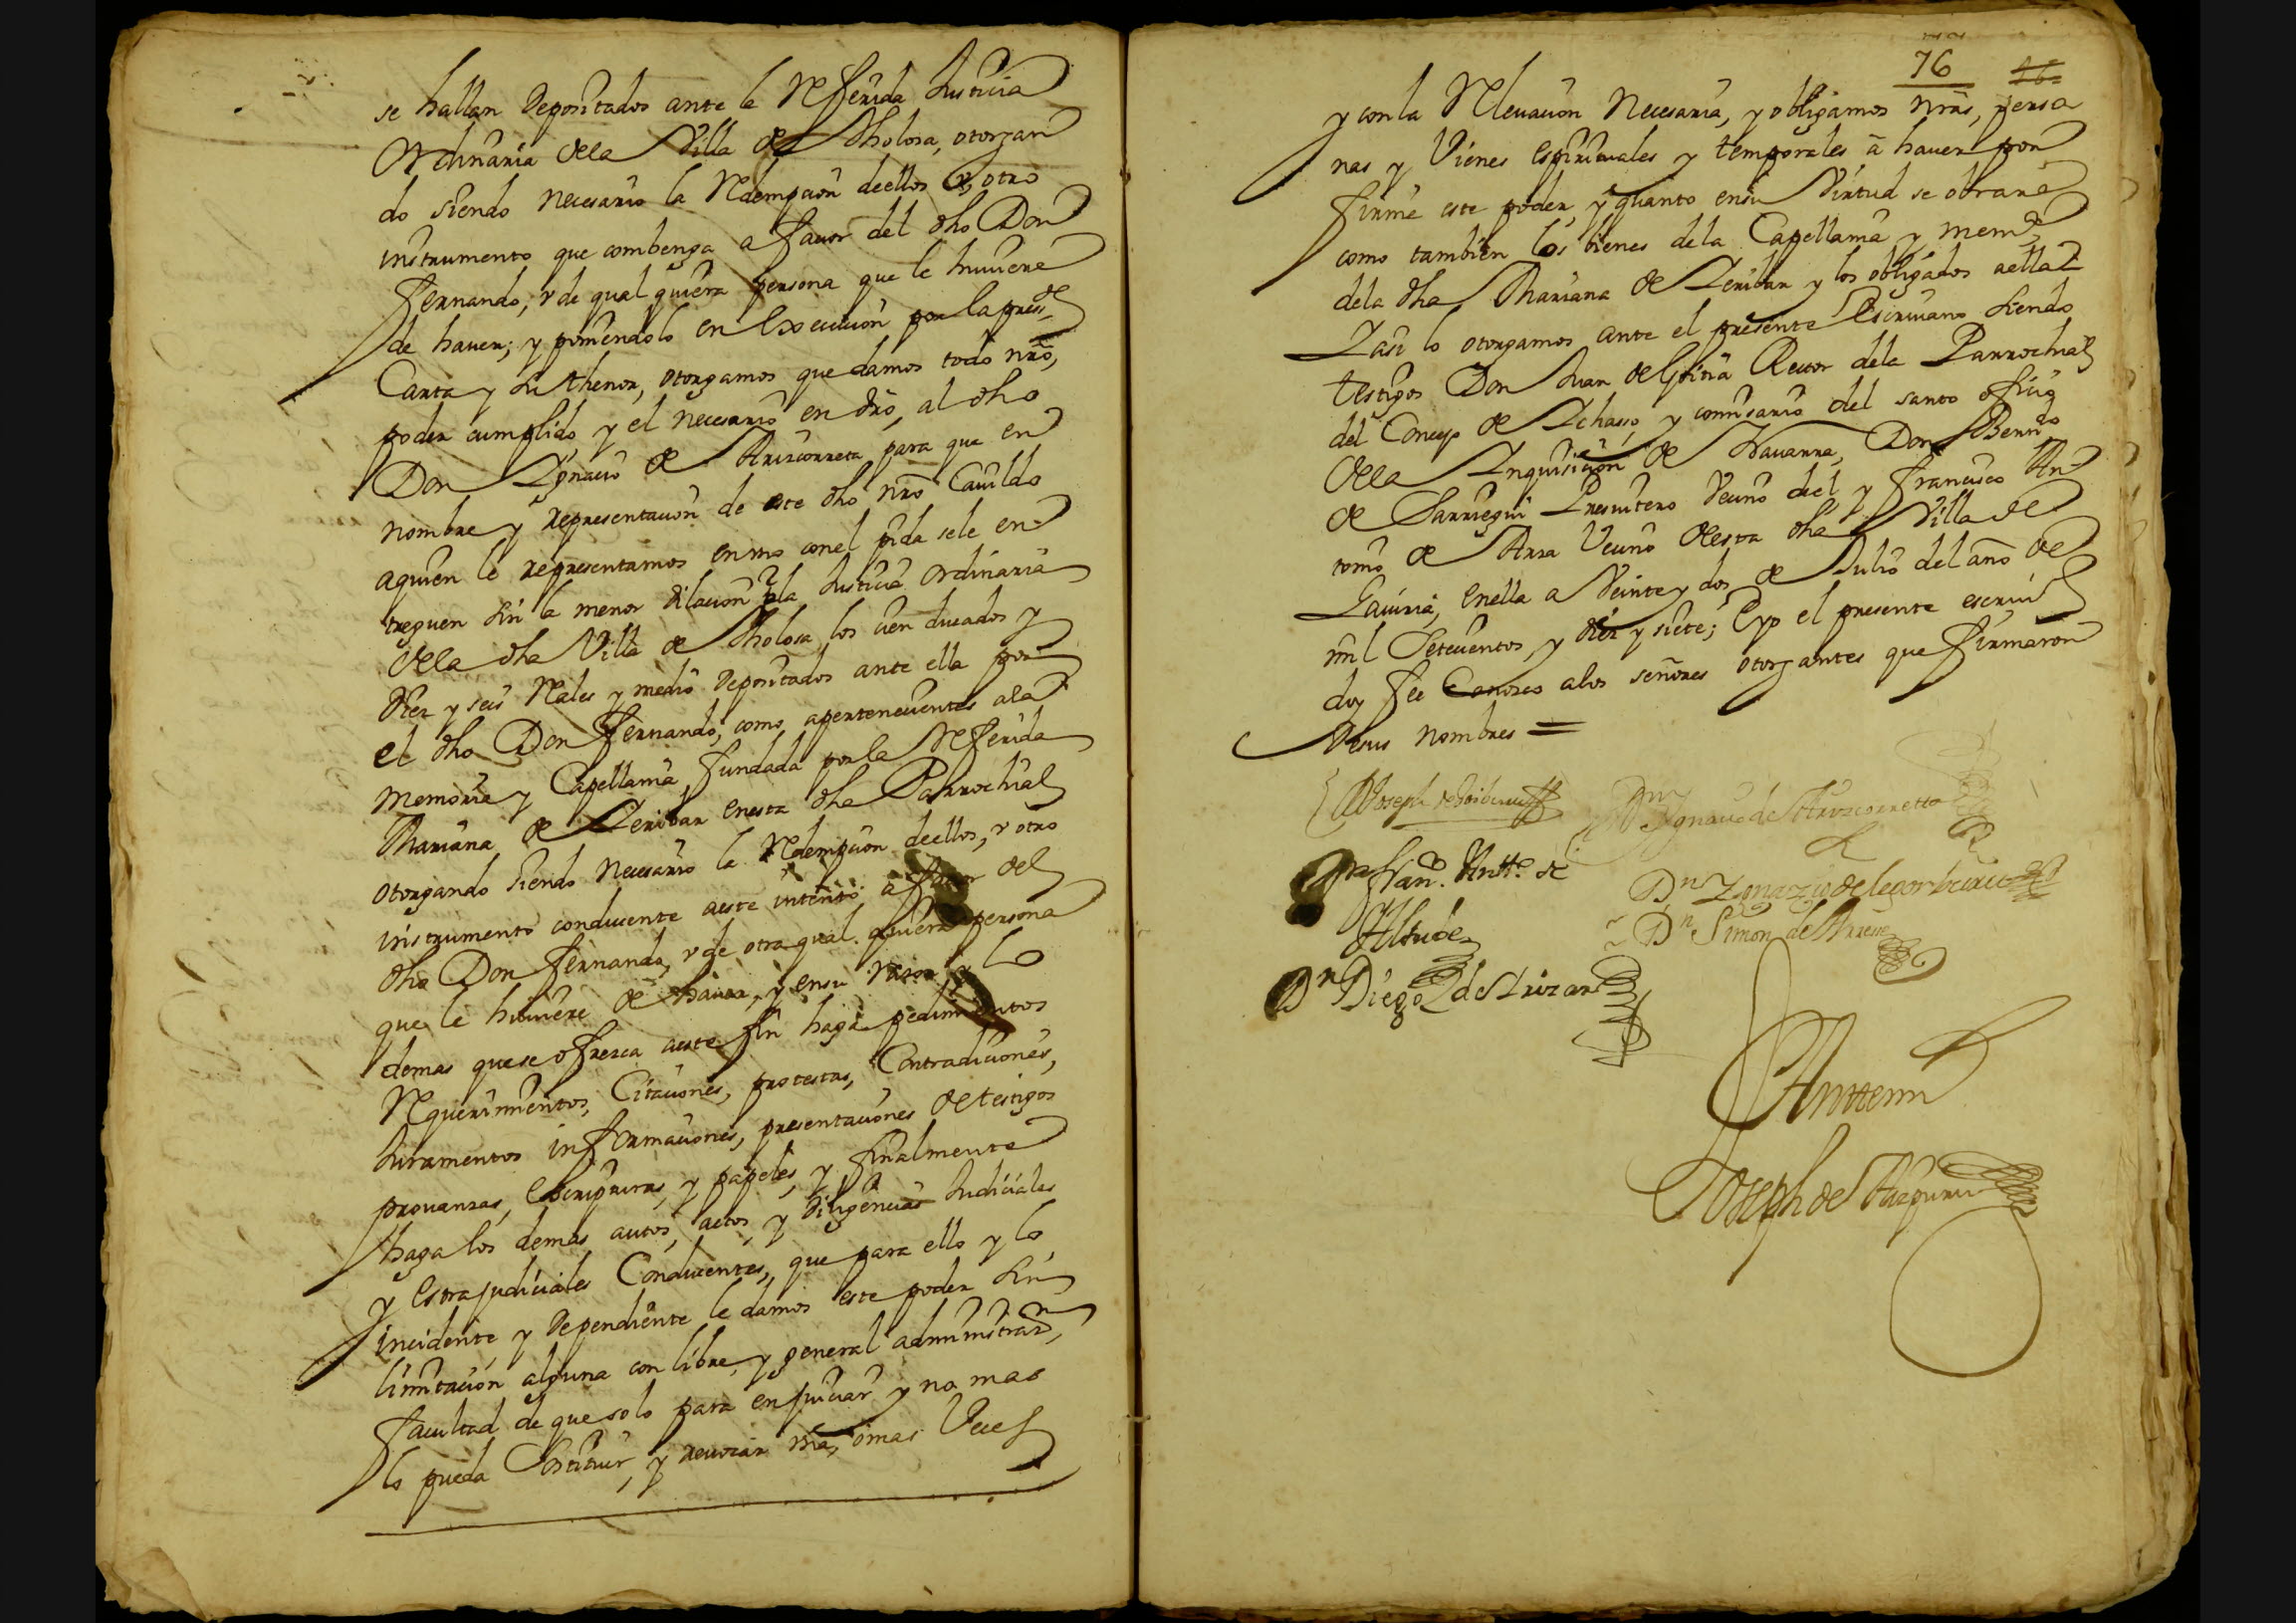 se hallan depositados ante la Refferida Justicia
Ordinaria de la Villa de Tholosa, otorgan
do siendo necesario la Redempcion de ellos, v otro
instrumento que combenga a favor del dho Don
Fernando, v de qual quiera persona que le huviere
de haver; y poniendolo en Execucion por la press.te
Carta y su thenor, otorgamos que damos todo nro,
poder cumplido, y el necesario en dro, al dho
Don Ignacio de Arizcorreta para que en
nombre y representacion de este dho nro Cavildo
aquien le representamos enuno con el pida se le en
treguen sin la menor dilacion la Justicia Ordinaria
de la dha Villa de Tholosa los cien ducados y
diez y seis Reales y medio depositados ante ella por
el dho Don Fernando, como apertenecientes ala
memoria y Capellania fundada por la Refferida
Mariana de Zeribar enesta dha Parrochial
otorgando siendo necesario la Redempcion de ellos, v otro
instrumento conducente aeste intento, a favor del
dho Don Fernando, v de otra qual quiera persona
que le huviere de haver, y en su razon y lo
demas que se ofrezca aeste fin haga pedimientos
Requerimientos, Citaciones, protestas, Contradiciones,
Juramentos informaciones, presentaciones de testigos
provanzas, Escripturas, y papeles, y finalmente
haga los demas autos, actos, y diligencias Judiciales
y Estrajudiciales Conducentes, que para ello y lo
incidente y dependiente le damos este poder sin
limitacion alguna con libre, y general administraz.on
facultad de que solo para enjuiciar y no mas
lo pueda Sostituir, y revocar una, o mas Veces
76
y con la Relevacion Necesaria, y obligamos nras, perso
nas y Vienes espirituales y temporales a haver por
firme este poder, y quanto en su Virtud se obrare
como tambien los bienes de la Capellania y mem.a
de la dha Mariana de Zeribar y los obligados aella
Y asi lo otorgamos ante el presente Escrivano siendo
testigos Don Juan de Rector de la Parrochial
del Concejo de Ichasso, y comisario del santo oficio
de la Inquisicion de Navarra, Don Bernardo
de Sarriegui Presvitero Vecino de el y Francisco An
tonio de Arza Vecino de esta dha Villa de
Gaviria, en ella a Veinte y dos de Julio del año de
mil Setecientos y diez y siete; E yo el presente escriv.o
doy fee Conozco alos señores otorgantes que firmaron
de sus nombres =
Dn Ignacio de Arizcorreta
Fran. Antt.o de
Dn Ignazio de Legorburu
Altube
Dn Simon de
Dn Diego de Arizar
Antemi
Joseph de Aizpuru